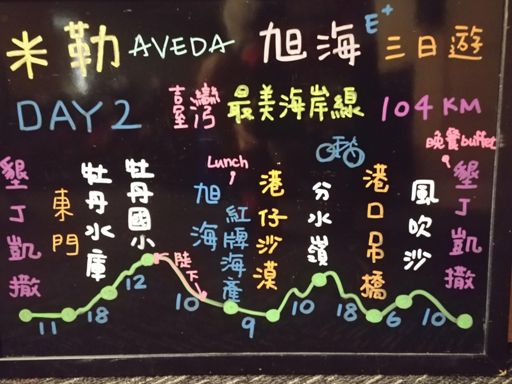 米勒 AVEDA 旭海 E+ 三日遊
DAY 2 臺灣 最美海岸線 104 KM
墾丁凱撒
東門
牡丹水庫
牡丹國小
陡下
Lunch
旭海
紅牌海產
港仔沙漠
分水嶺
港口吊橋
風吹沙
晚餐buffet
墾丁凱撒
11 18 12 10 9 10 18 6 10